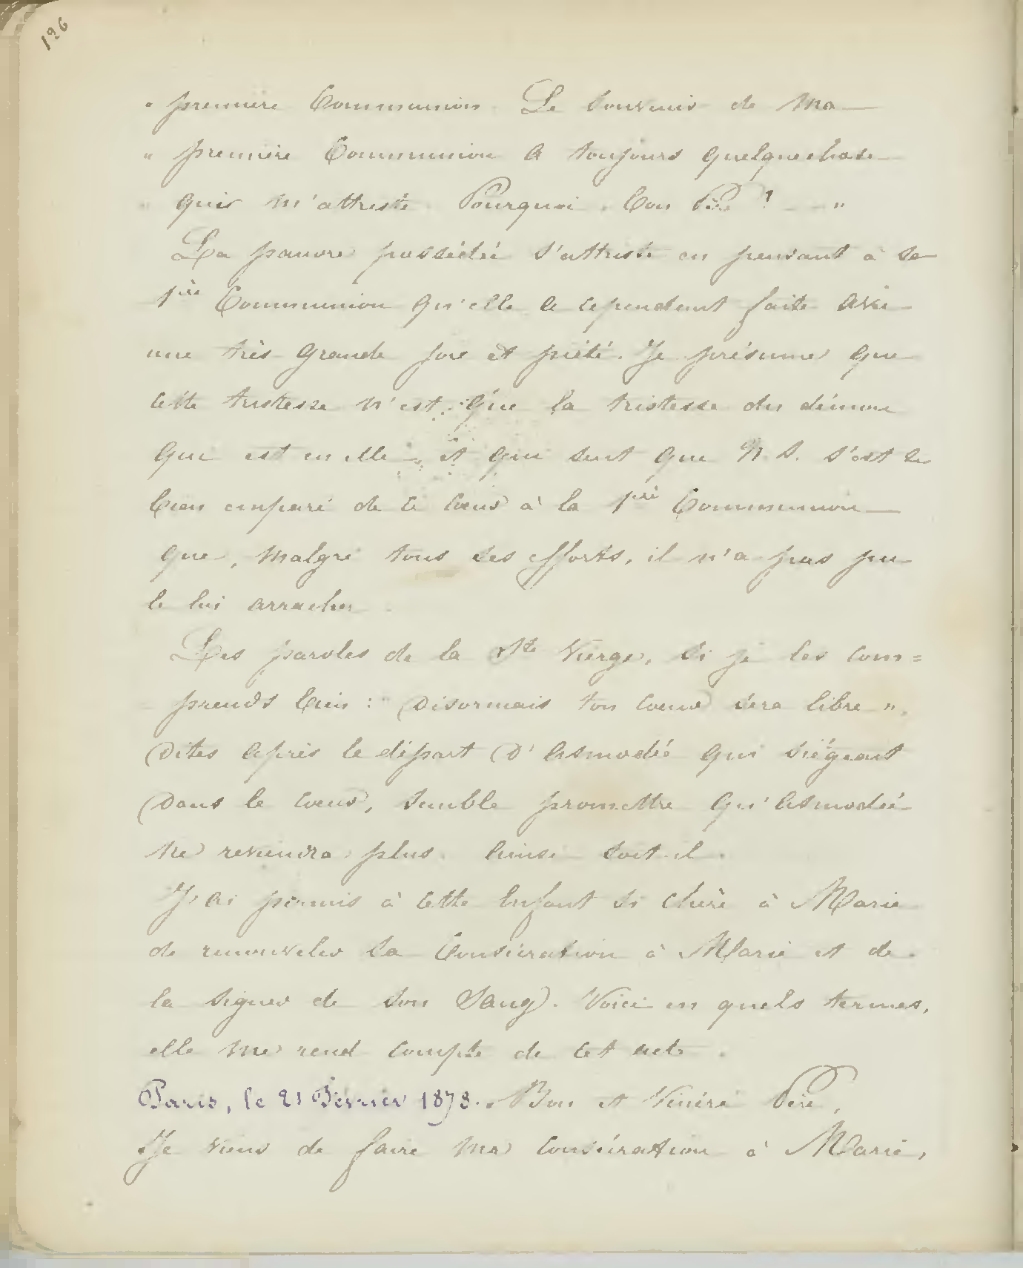 196
" première Communion. Le souvenir de ma
" première Communion a toujours quelquechose
" qui m'attriste. Pourquoi, bon Père ? — "
La pauvre possédée s'attriste en pensant à sa
1ère Communion qu'elle a cependant faite avec
une très grande joie et piété. Je présume que
cette tristesse n'est que la tristesse du démon
qui est en elle, et qui sent que N. S. s'est si
bien emparé de ce cœur à la 1ère Communion
que, malgré tous ses efforts, il n'a pas pu
le lui arracher.
Les paroles de la Ste Vierge, si je les com=
prends bien : "Désormais ton cœur sera libre",
dites après le départ d'Asmodée qui siégeait
dans le cœur, semble promettre qu'Asmodée
ne reviendra plus. Ainsi soit-il.
J'ai permis à cette Enfant si chère à Marie
de renouveler sa Consécration à Marie et de
la signer de son Sang. Voici en quels termes,
elle me rend compte de cet acte.
Paris, le 21 Février 1878. Bon et Vénéré Père,
Je viens de faire ma consécration à Marie,